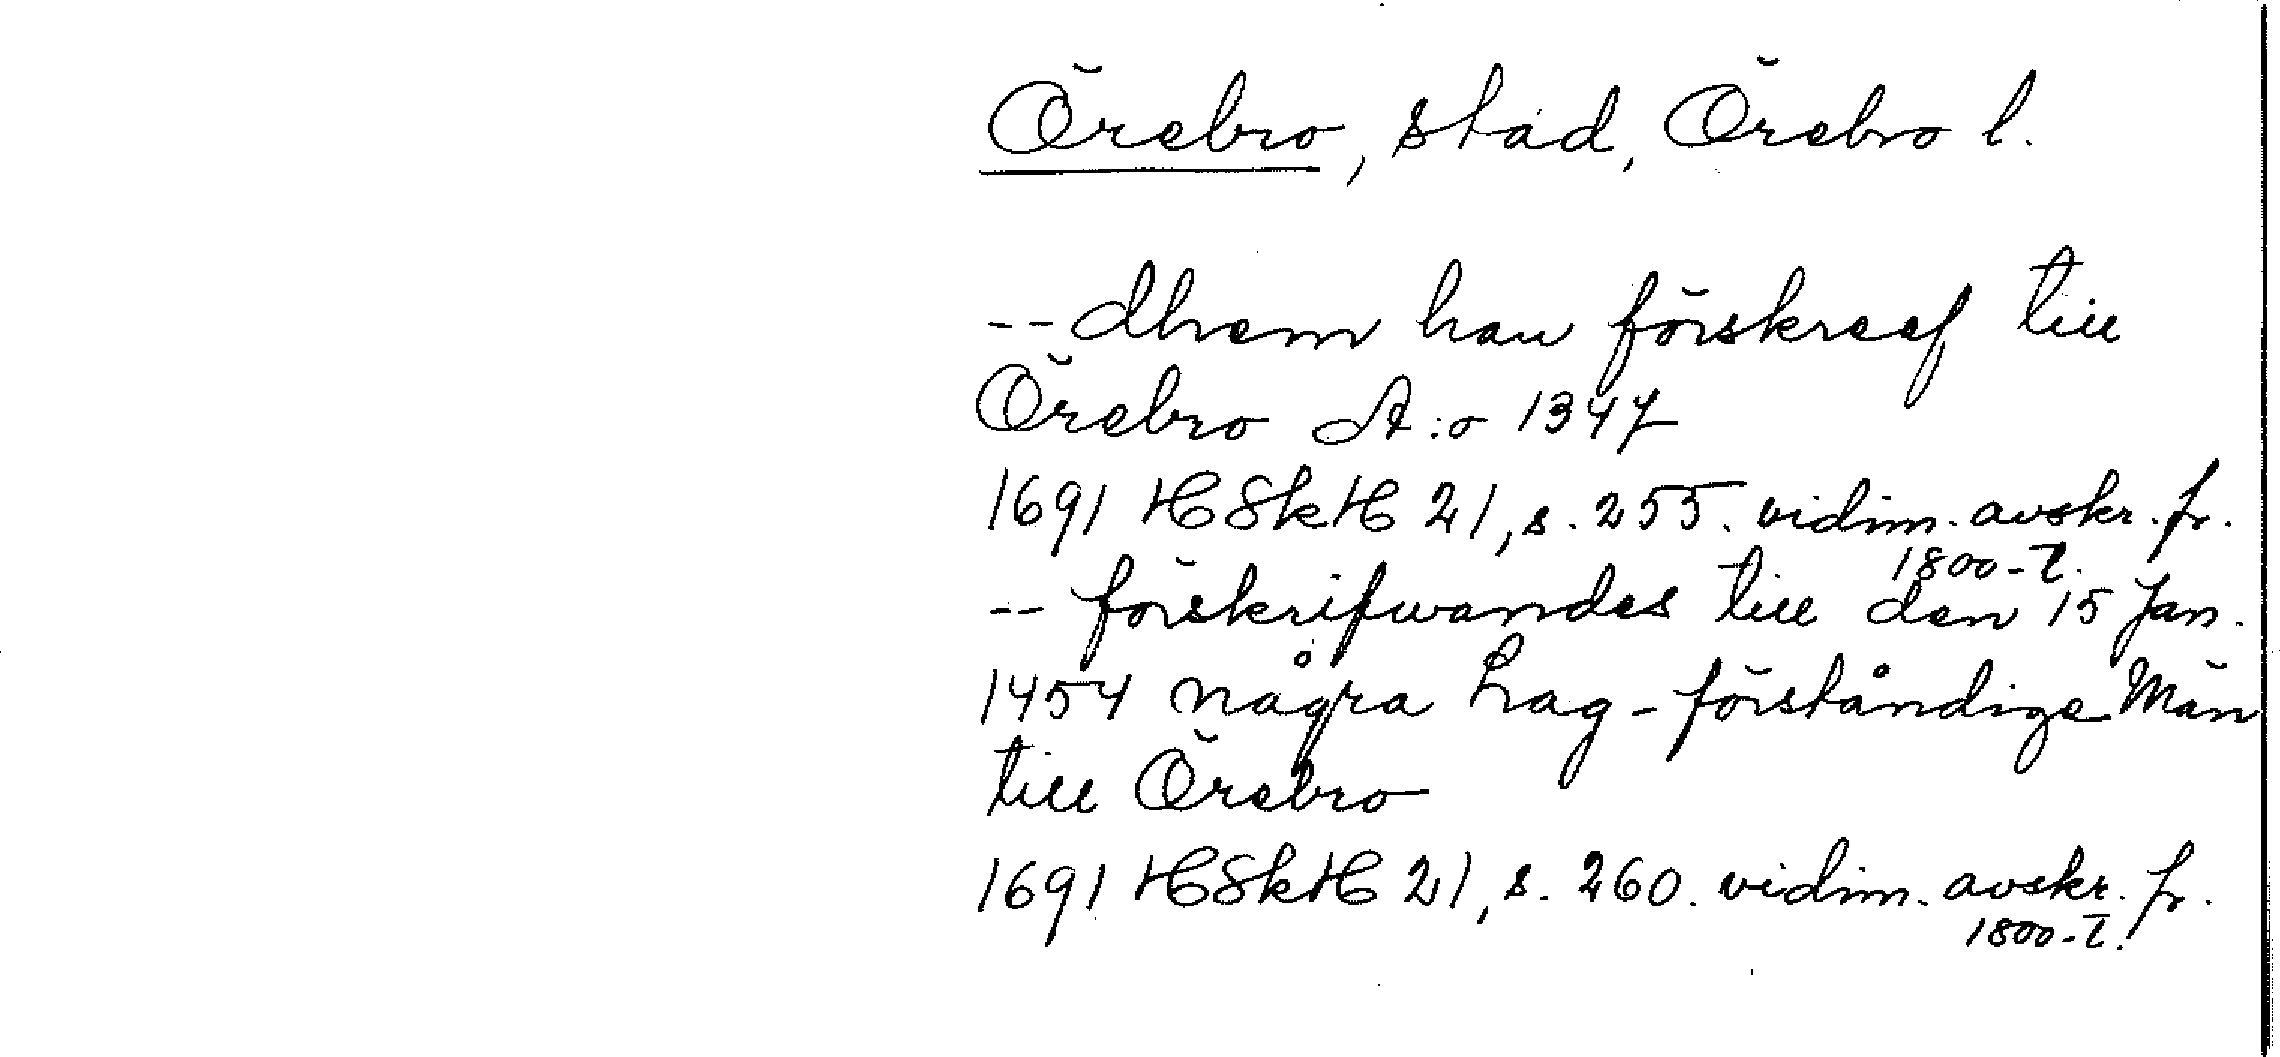 Örebro, stad, Örebro l.
-- dhem han förskreef till
Örebro A:o 1347
1691 HSkH 21, s. 255. vidim. avskr. fr.
1800-t.
-- förskrifwandes till den 15 Jan.
1454 några Lag-förståndige Män
till Örebro
1691 HSkH 21, s. 260. vidim. avskr. fr.
1800-t.